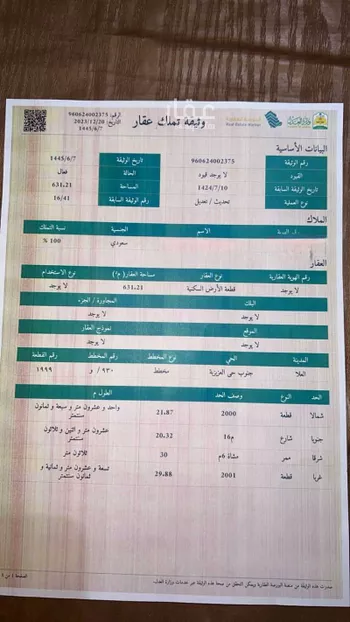 وثيقة تملك عقار
الرقم: 960624002375
التاريخ: 2023/12/20
1445/6/7
وزارة العدل
البورصة العقارية
Real Estate Market
عقار
البيانات الأساسية
رقم الوثيقة 960624002375 تاريخ الوثيقة 1445/6/7
القيود لا يوجد قيود الحالة فعال
تاريخ الوثيقة السابقة 1424/7/10 المساحة 631.21
نوع العملية تحديث / تعديل رقم الوثيقة السابقة 16/41
الملاك
الاسم الجنسية نسبة التملك
سعودي 100 %
العقار
رقم الهوية العقارية نوع العقار مساحة العقار (م²) نوع الاستخدام
لا يوجد قطعة الأرض السكنية 631.21 لا يوجد
البلك المجاورة / الجزء
لا يوجد لا يوجد
الموقع نموذج العقار
لا يوجد لا يوجد
المدينة الحي نوع المخطط رقم المخطط رقم القطعة
العلا جنوب حي العزيزية مخطط ٩٣٠ / و ١٩٩٩
الحد النوع وصف الحد الطول م
شمالا قطعة 2000 21.87 واحد و عشرون متر و سبعة و ثمانون سنتمتر
جنوبا شارع م16 20.32 عشرون متر و اثنين و ثلاثون سنتمتر
شرقا ممر مشاة 6م 30 ثلاثون متر
غربا قطعة 2001 29.88 تسعة و عشرون متر و ثمانية و ثمانون سنتمتر
صدرت هذه الوثيقة من منصة البورصة العقارية ويمكن التحقق من صحة هذه الوثيقة عبر خدمات وزارة العدل.